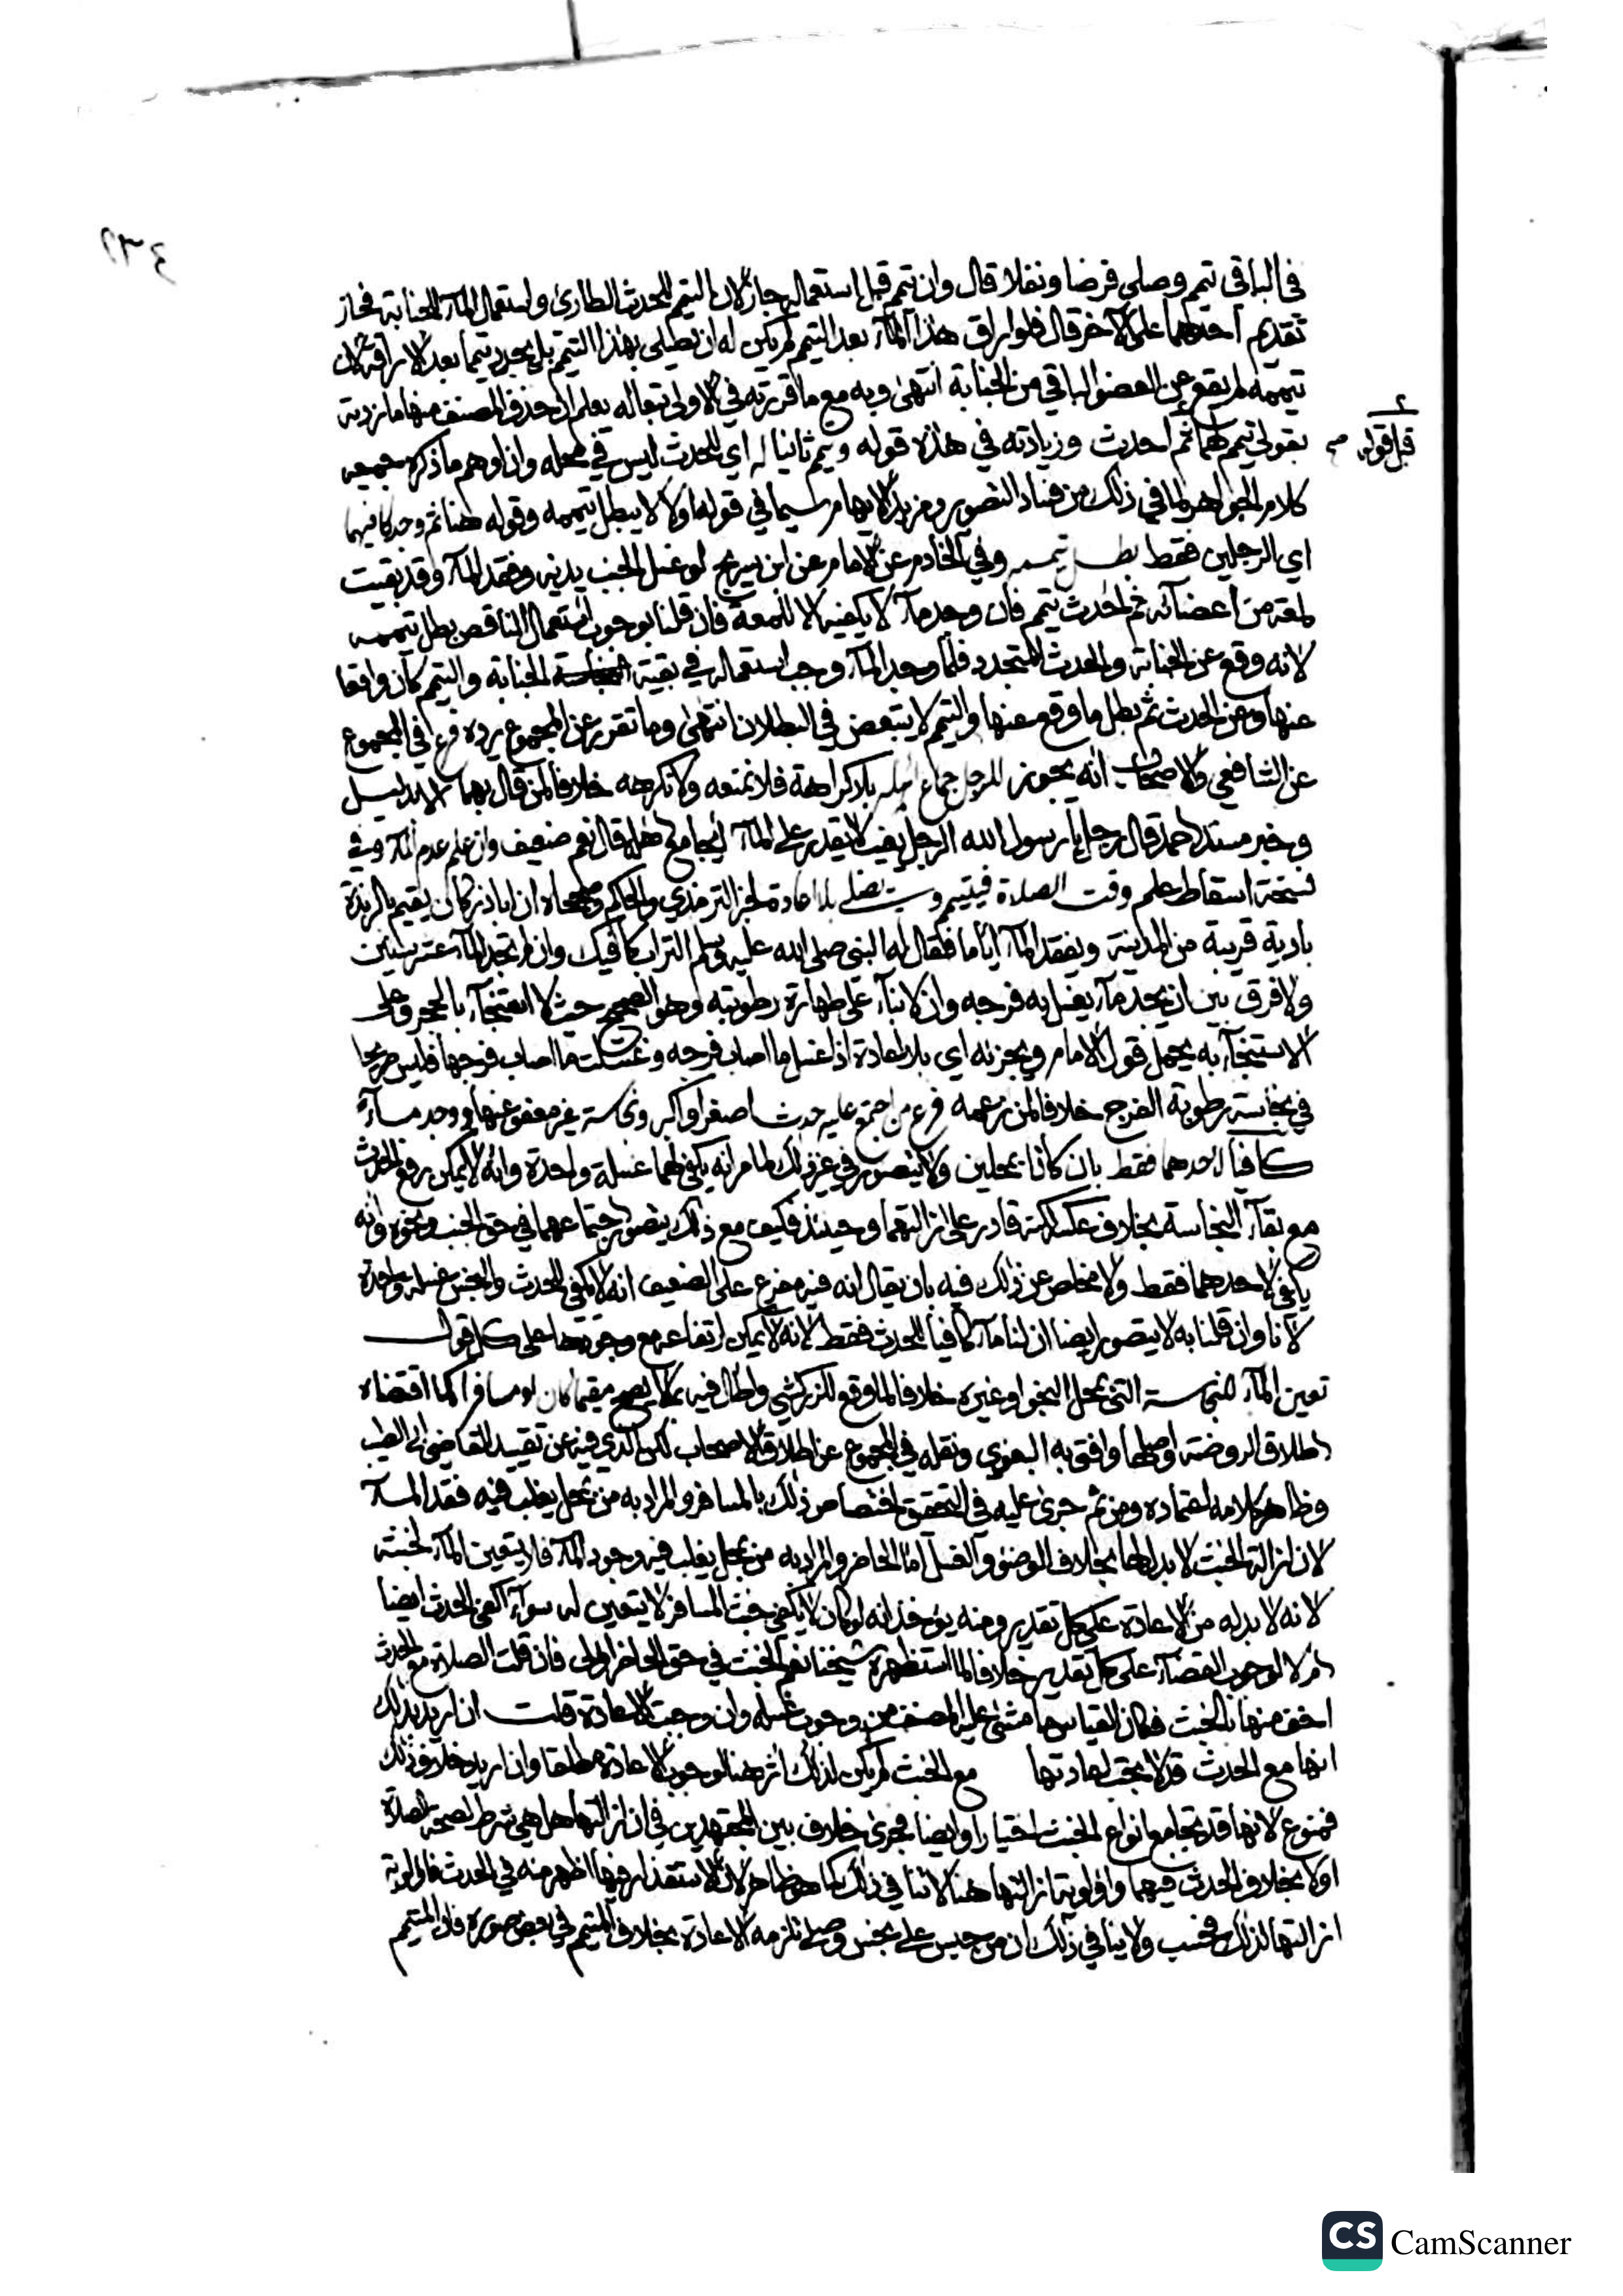 ٢٣٤
في الباقي تيمم وصلى فرضا ونفلا قال وان تيمم قبل استعماله جاز لان التيمم للحدث الطارئ واستعمال المآء للجنابة فجاز
تقديم احدهما على الآخر قال فلو اراق هذا المآء بعد التيمم لم يكن له ان يصلي بهذا التيمم بل يجدد تيمما بعد الاراقة لان
تيممه لم يقع عن العضو الباقي من الجنابة انتهى وبه مع ما قررته في الاولى تبعا له يعلم ان حذف المصنف منها ما زدته
بقولي تيمم لهما ثم احدث وزيادته في هذه قوله ويتم ثانيا له اي للحدث ليس في محله وان اوهم ما ذكره جميعه
قبل قوله صح
كلام الجواهر لما في ذلك من فساد التصوير ومزيد الايهام سيما في قوله اولا لا يبطل تيممه وقوله هنا ثم وجد كافيهما
اي الرجلين فقط بطل تيممه وفي الخادم عن الامام عن ابن سريج لو غسل الجنب بدنه وفقد المآء وقد بقيت
لمعة من اعضآئه ثم احدث تيمم فان وجد مآء لا يكفيه الا للمعة فان قلنا بوجوب استعمال الناقص بطل تيممه
لانه وقع عن الجنابة والحدث المتجدد فلما وجد المآء وجب استعماله في بقية الجنابة والتيمم كان واقعا
عنها وعن الحدث ثم بطل ما وقع عنها والتيمم لا يتبعض في البطلان انتهى وما تقرر عن المجموع يرده فرع في المجموع
عن الشافعي والاصحاب انه يجوز للرجل جماع اهله بلا كراهة فلا نمنعه ولا نكرهه خلافا لمن قال بهما الا بدليل
وخبر مسند احمد قال رجل يا رسول الله الرجل يغيب لا يقدر على المآء ايجامع اهله قال نعم ضعيف وان علم عدم المآء وفي
نسخة اسقاط علم وقت الصلاة فيتيمم ويصلي بلا اعادة لخبر الترمذي والحاكم وصححاه ان ابا ذر كان يقيم بالربذة
بادية قريبة من المدينة ويفقد المآء اياما فقال له النبي صلى الله عليه وسلم التراب كافيك وان لم تجد المآء عشر سنين
ولا فرق بين ان يجد مآء يغسل به فرجه وان لا بنآء على طهارة رطوبته وهو الصحيح حيث لا استنجآء بالحجر وعلى
الاستنجآء به يحمل قول الامام ويجزئه اي بلا اعادة اذا غسل ما اصاب فرجه وغسلت ما اصاب فرجها فليس صريحا
في نجاسة رطوبة الفرج خلافا لمن زعمه فرع من اجتمع عليه حدث اصغر او اكبر ونجاسة غير معفو عنها ووجد مآء
كافيا احدهما فقط بان كانا بمحلين ولا يتصور في غير ذلك لما مر انه يكفي لهما غسلة واحدة وانه لا يمكن رفع الحدث
مع بقآء النجاسة بخلاف عكسه قادر على ازالتهما وحينئذ فكيف مع ذلك يتصور اجتماعهما في حق الجنب ونحوه وانه
يكفي لاحدهما فقط ولا مخلص عن ذلك فيه بان يقال انه فيه مفرع على الضعيف انه لا يكفي الحدث والنجس غسلة واحدة
لانا وان قلنا به لا يتصور ايضا ان لنا مآء كافيا للحدث فقط لانه لا يمكن ارتفاعه مع وجودها على كل قول
تعين المآء للنجاسة التي بمحل النجو او غيره خلافا لما وقع للزركشي واطال فيه بما لا يصح مقيما كان او مسافرا كما اقتضاه
اطلاق الروضة واصلها وافتى به البغوي ونقله في المجموع عن اطلاق الاصحاب لكن الذي فيه عن تقييد القاضي ابي الطيب
وظاهر كلامه اعتماده ومن ثم جرى عليه في التحقيق اختصاص ذلك بالمسافر والمراد به من بمحل يغلب فيه فقد المآء
لان ازالة الخبث لا بدل لها بخلاف الوضوء والغسل اما الحاضر والمراد به من بمحل يغلب فيه وجود المآء فلا يتعين المآء لخبثه
لانه لا بد له من الاعادة على كل تقدير ومنه يؤخذ انه لو كان لا يكفي خبث المسافر لا يتعين له سوآء اكفى الحدث ايضا
ام لا لوجوب القضآء على كل تقدير خلافا لما استظهره شيخنا نعم الخبث في حق الحاضر اولى فان قلت الصلاة مع الحدث
اخف منها بالخبث فكان القياس ما مشى عليه المصنف من وجوب غسله وان وجبت الاعادة قلت ان اريد بذلك
انها مع الحدث قد لا يجب اعادتها مع الخبث لم يكن لذلك اثر هنا لوجوب الاعادة مطلقا وان اريد خلاف ذلك
فممنوع لانها قد تجامع انواع الخبث اختيارا وايضا فجرى خلاف بين المجتهدين في ان ازالتها هل هي شرط لصحة الصلاة
او لا بخلاف الحدث فيهما واولوية ازالتها هنا لا تنافي ذلك كما هو ظاهر لان الاستقذار فيها اظهر منه في الحدث فاولوية
ازالتها لذلك فحسب ولا ينافي ذلك ان من حبس على نجس وصلى تلزمه الاعادة بخلاف المتيمم في بعض صوره فان المتيمم
CS CamScanner